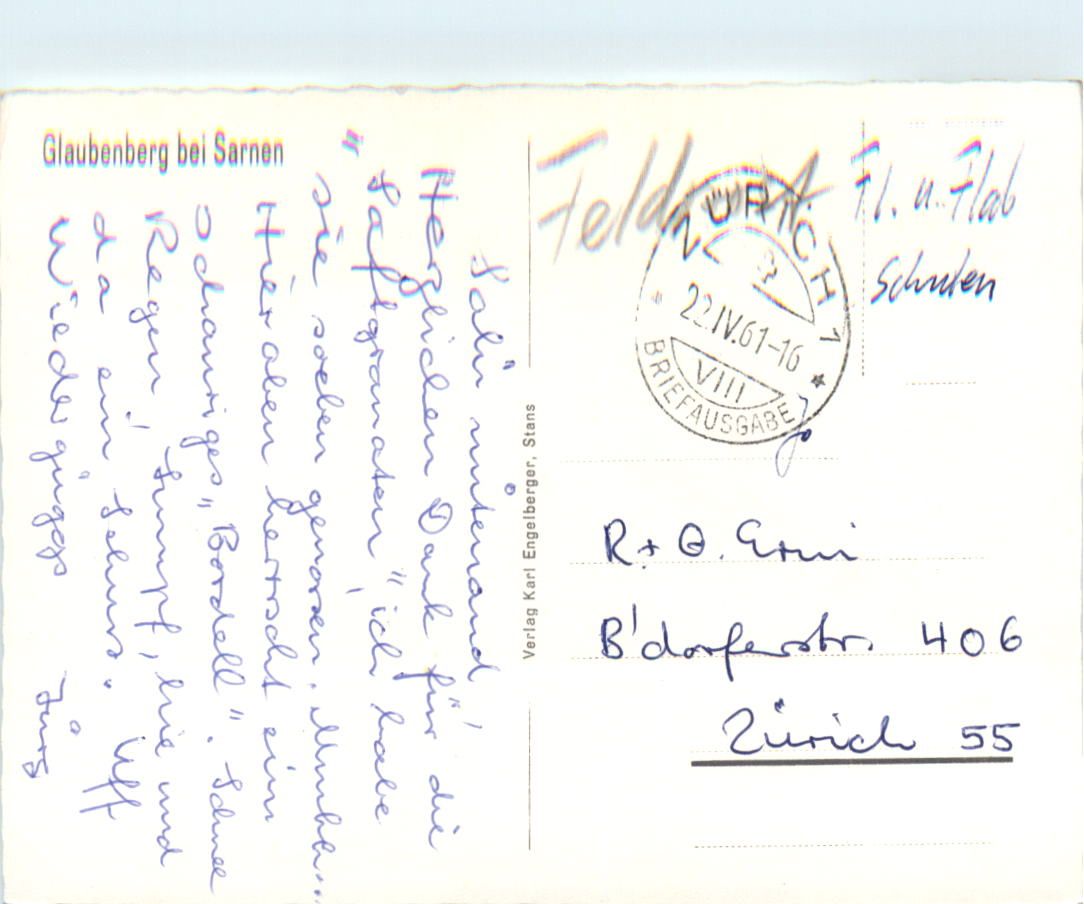 Glaubenberg bei Sarnen
Salü mitenand!
Herzlichen Dank für die
"Saftgranaten", ich habe
sie soeben genossen. Mmhh...
Hier oben herrscht ein
schauriges "Bordell". Schnee
Regen, Sumpf, hie und
da ein Schuss. Uff
Wiedergüggs
Jürg
Verlag Karl Engelberger, Stans
Feldpost
ZÜRICH 1
22.IV.61-16
VIII
BRIEFAUSGABE
Fl. u. Flab
Schulen
R + O.
B'dorferstr. 406
Zürich 55